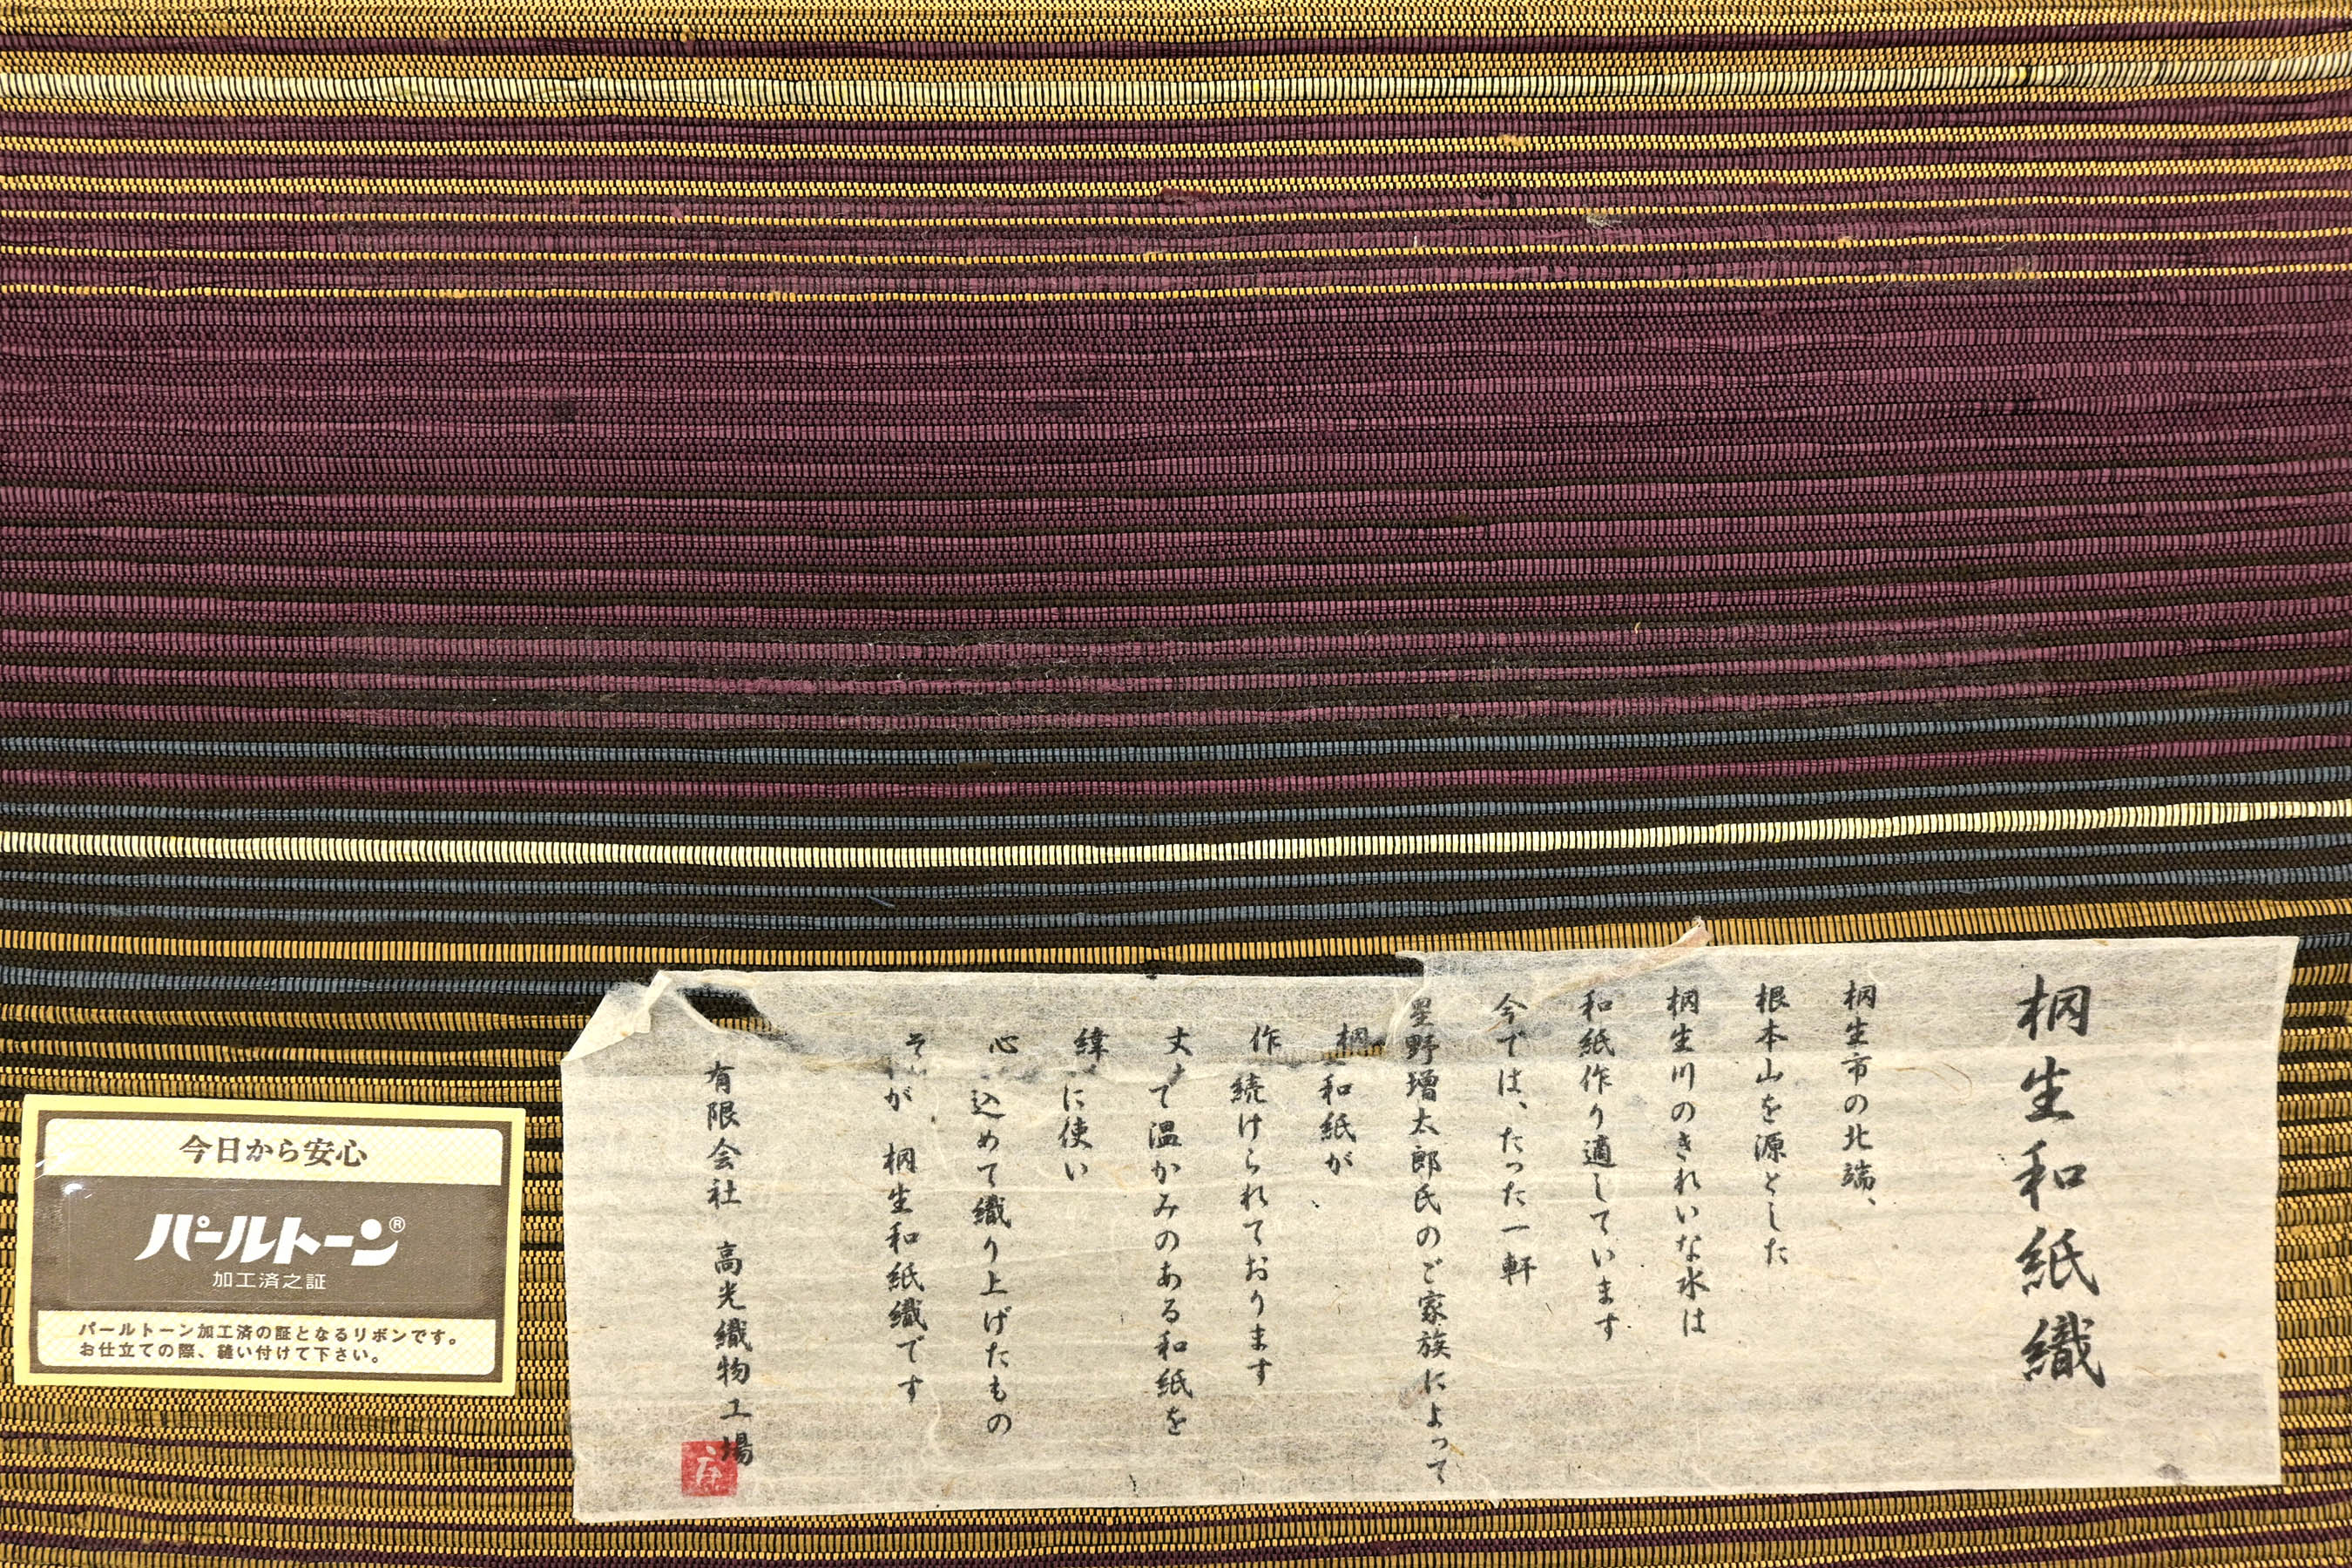 桐生和紙織
桐生市の北端、
根本山を源とした
桐生川のきれいな水は
和紙作り適しています
今では、たった一軒
星野増太郎氏のご家族によって
桐生和紙が
作り続けられております
丈夫で温かみのある和紙を
緯に使い
心込めて織り上げたもの
そが 桐生和紙織です
有限会社 高光織物工場
今日から安心
パールトーン®
加工済之証
パールトーン加工済の証となるリボンです。
お仕立ての際、縫い付けて下さい。